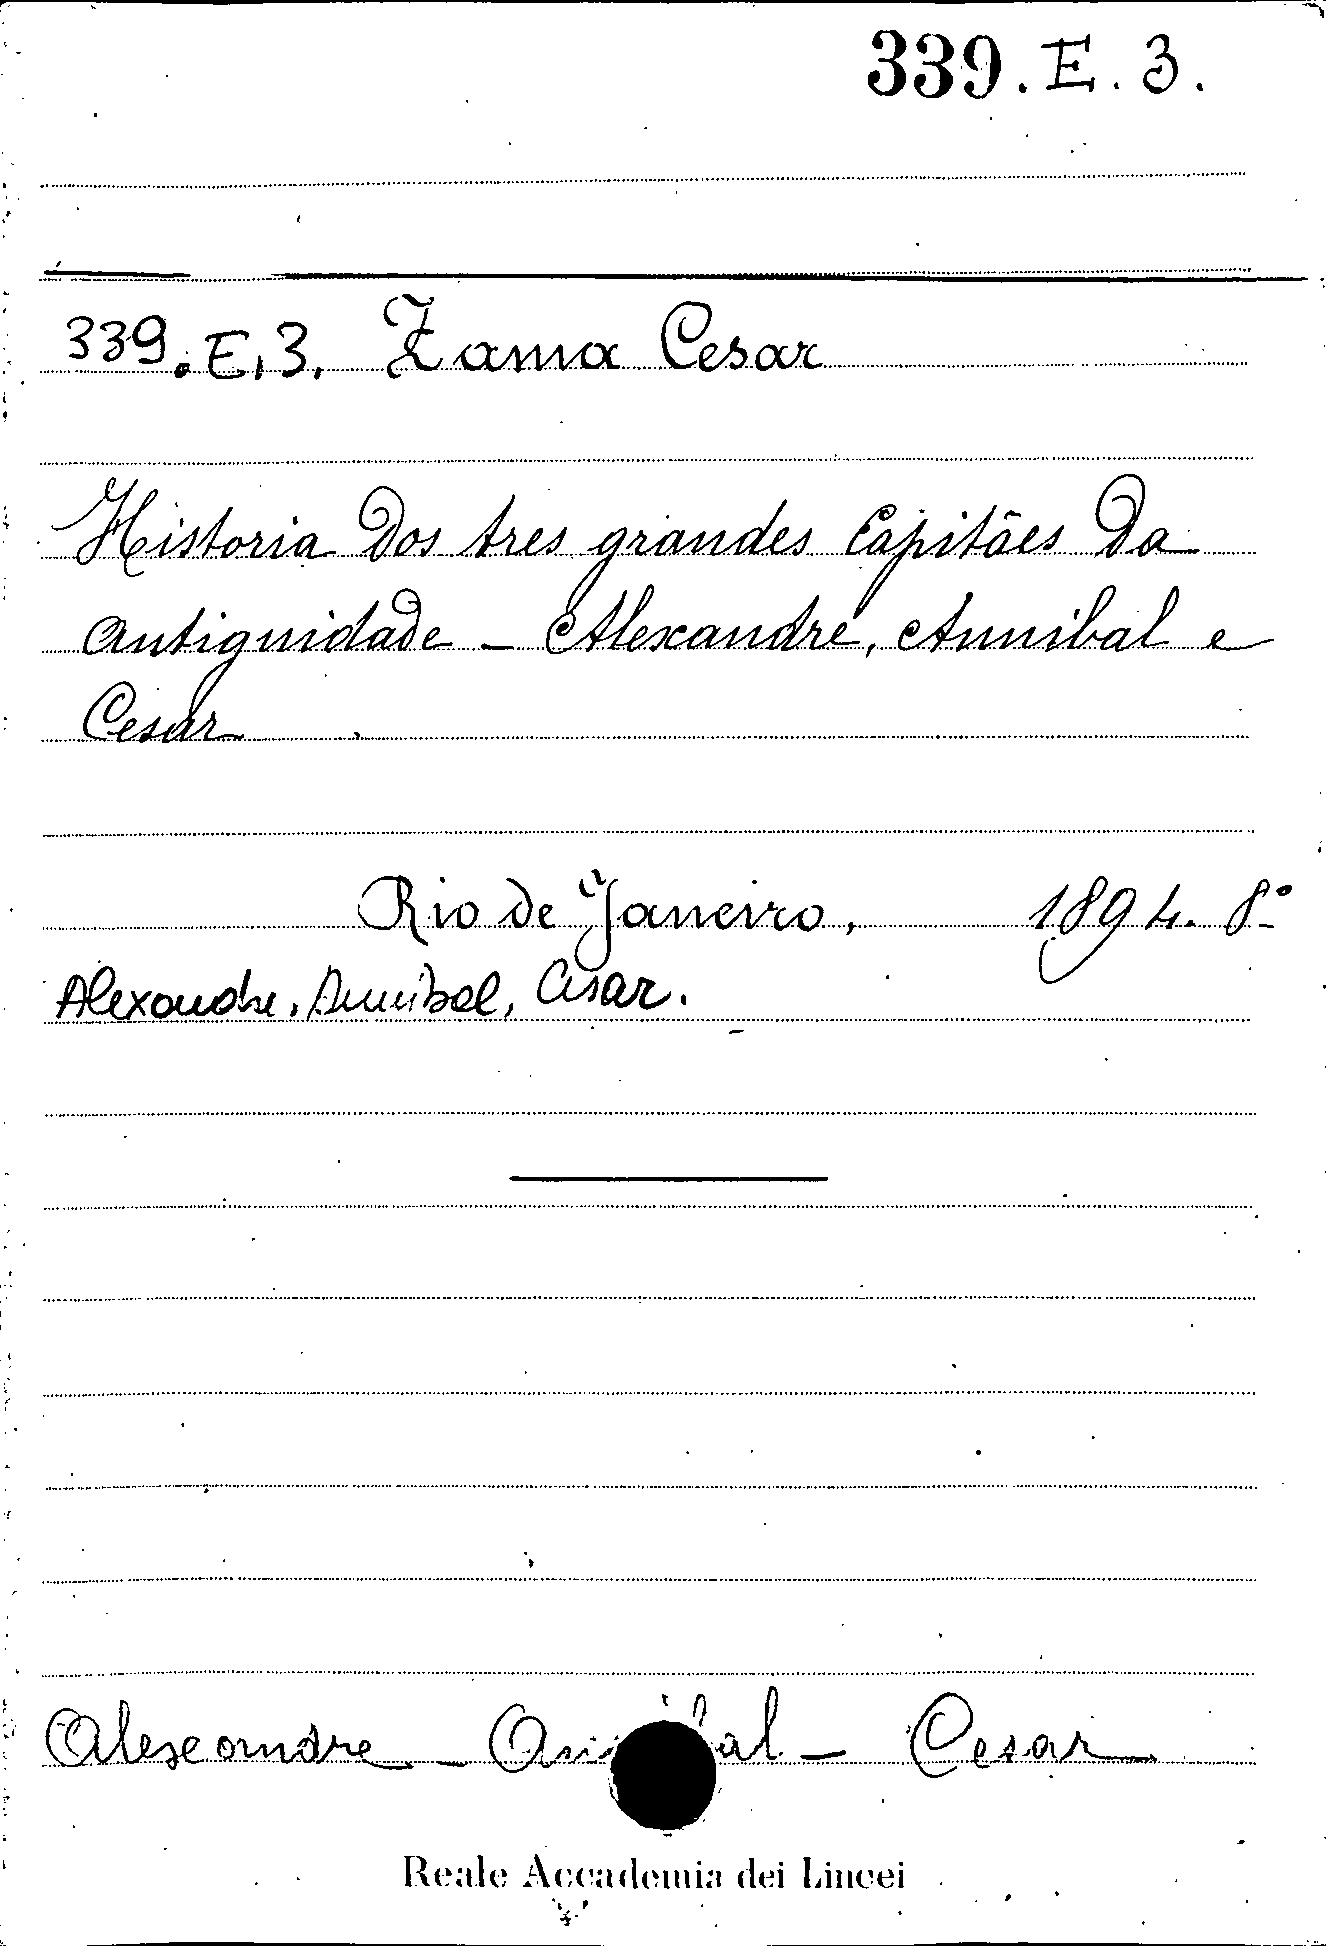 339.E.3.
339.E.3. Zama Cesar
Historia dos tres grandes Capitães da
antiguidade - Alexandre, Annibal e
Cesar
Rio de Janeiro, 1894. 8º
Alexandre, Annibal, Cesar.
Alexandre - - Cesar
Reale Accademia dei Lincei